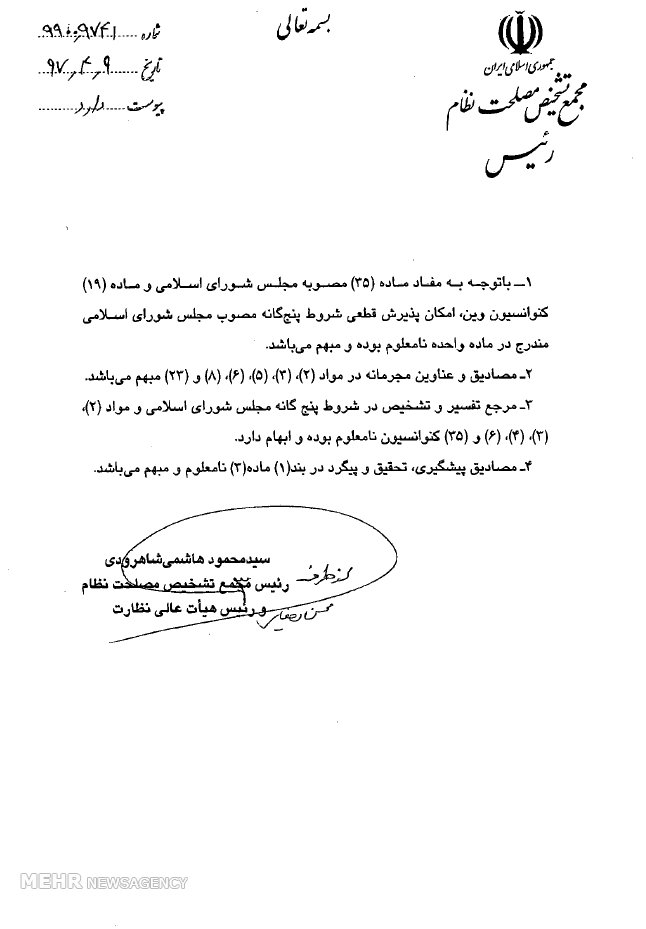 بسمه تعالی
جمهوری اسلامی ایران
مجمع تشخیص مصلحت نظام
رئیس
شماره
تاریخ ۹۷٫۴٫۹
پیوست دارد
۱ــ باتوجه به مفاد ماده (۳۵) مصوبه مجلس شورای اسلامی و ماده (۱۹)
کنوانسیون وین، امکان پذیرش قطعی شروط پنج‌گانه مصوب مجلس شورای اسلامی
مندرج در ماده واحده نامعلوم بوده و مبهم می‌باشد.
۲ـ مصادیق و عناوین مجرمانه در مواد (۲)، (۳)، (۵)، (۶)، (۸) و (۲۳) مبهم می‌باشد.
۳ـ مرجع تفسیر و تشخیص در شروط پنج گانه مجلس شورای اسلامی و مواد (۲)،
(۳)، (۴)، (۶) و (۳۵) کنوانسیون نامعلوم بوده و ابهام دارد.
۴ـ مصادیق پیشگیری، تحقیق و پیگرد در بند(۱) ماده(۳) نامعلوم و مبهم می‌باشد.
سیدمحمود هاشمی‌شاهرودی
رئیس مجمع تشخیص مصلحت نظام
و رئیس هیأت عالی نظارت
از طرف
محسن رضایی
MEHR NEWSAGENCY